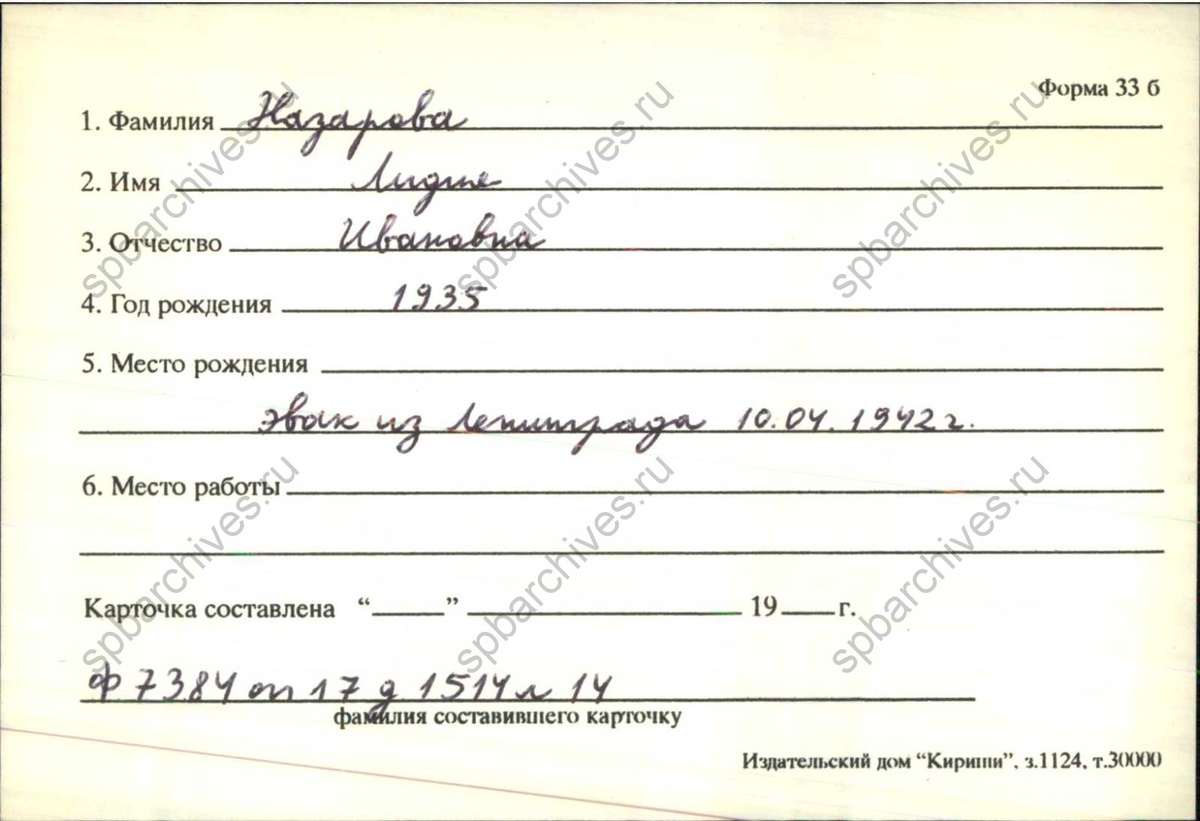 Форма 33 б
1. Фамилия Назарова
2. Имя Лидия
3. Отчество Ивановна
4. Год рождения 1935
5. Место рождения
эвак из Ленинграда 10.04.1942 г.
6. Место работы
Карточка составлена “____” ____ 19____ г.
ф 7384 оп 17 д 1514 л 14
фамилия составившего карточку
Издательский дом “Кириши”, з.1124, т.30000
spbarchives.ru
spbarchives.ru
spbarchives.ru
spbarchives.ru
spbarchives.ru
spbarchives.ru